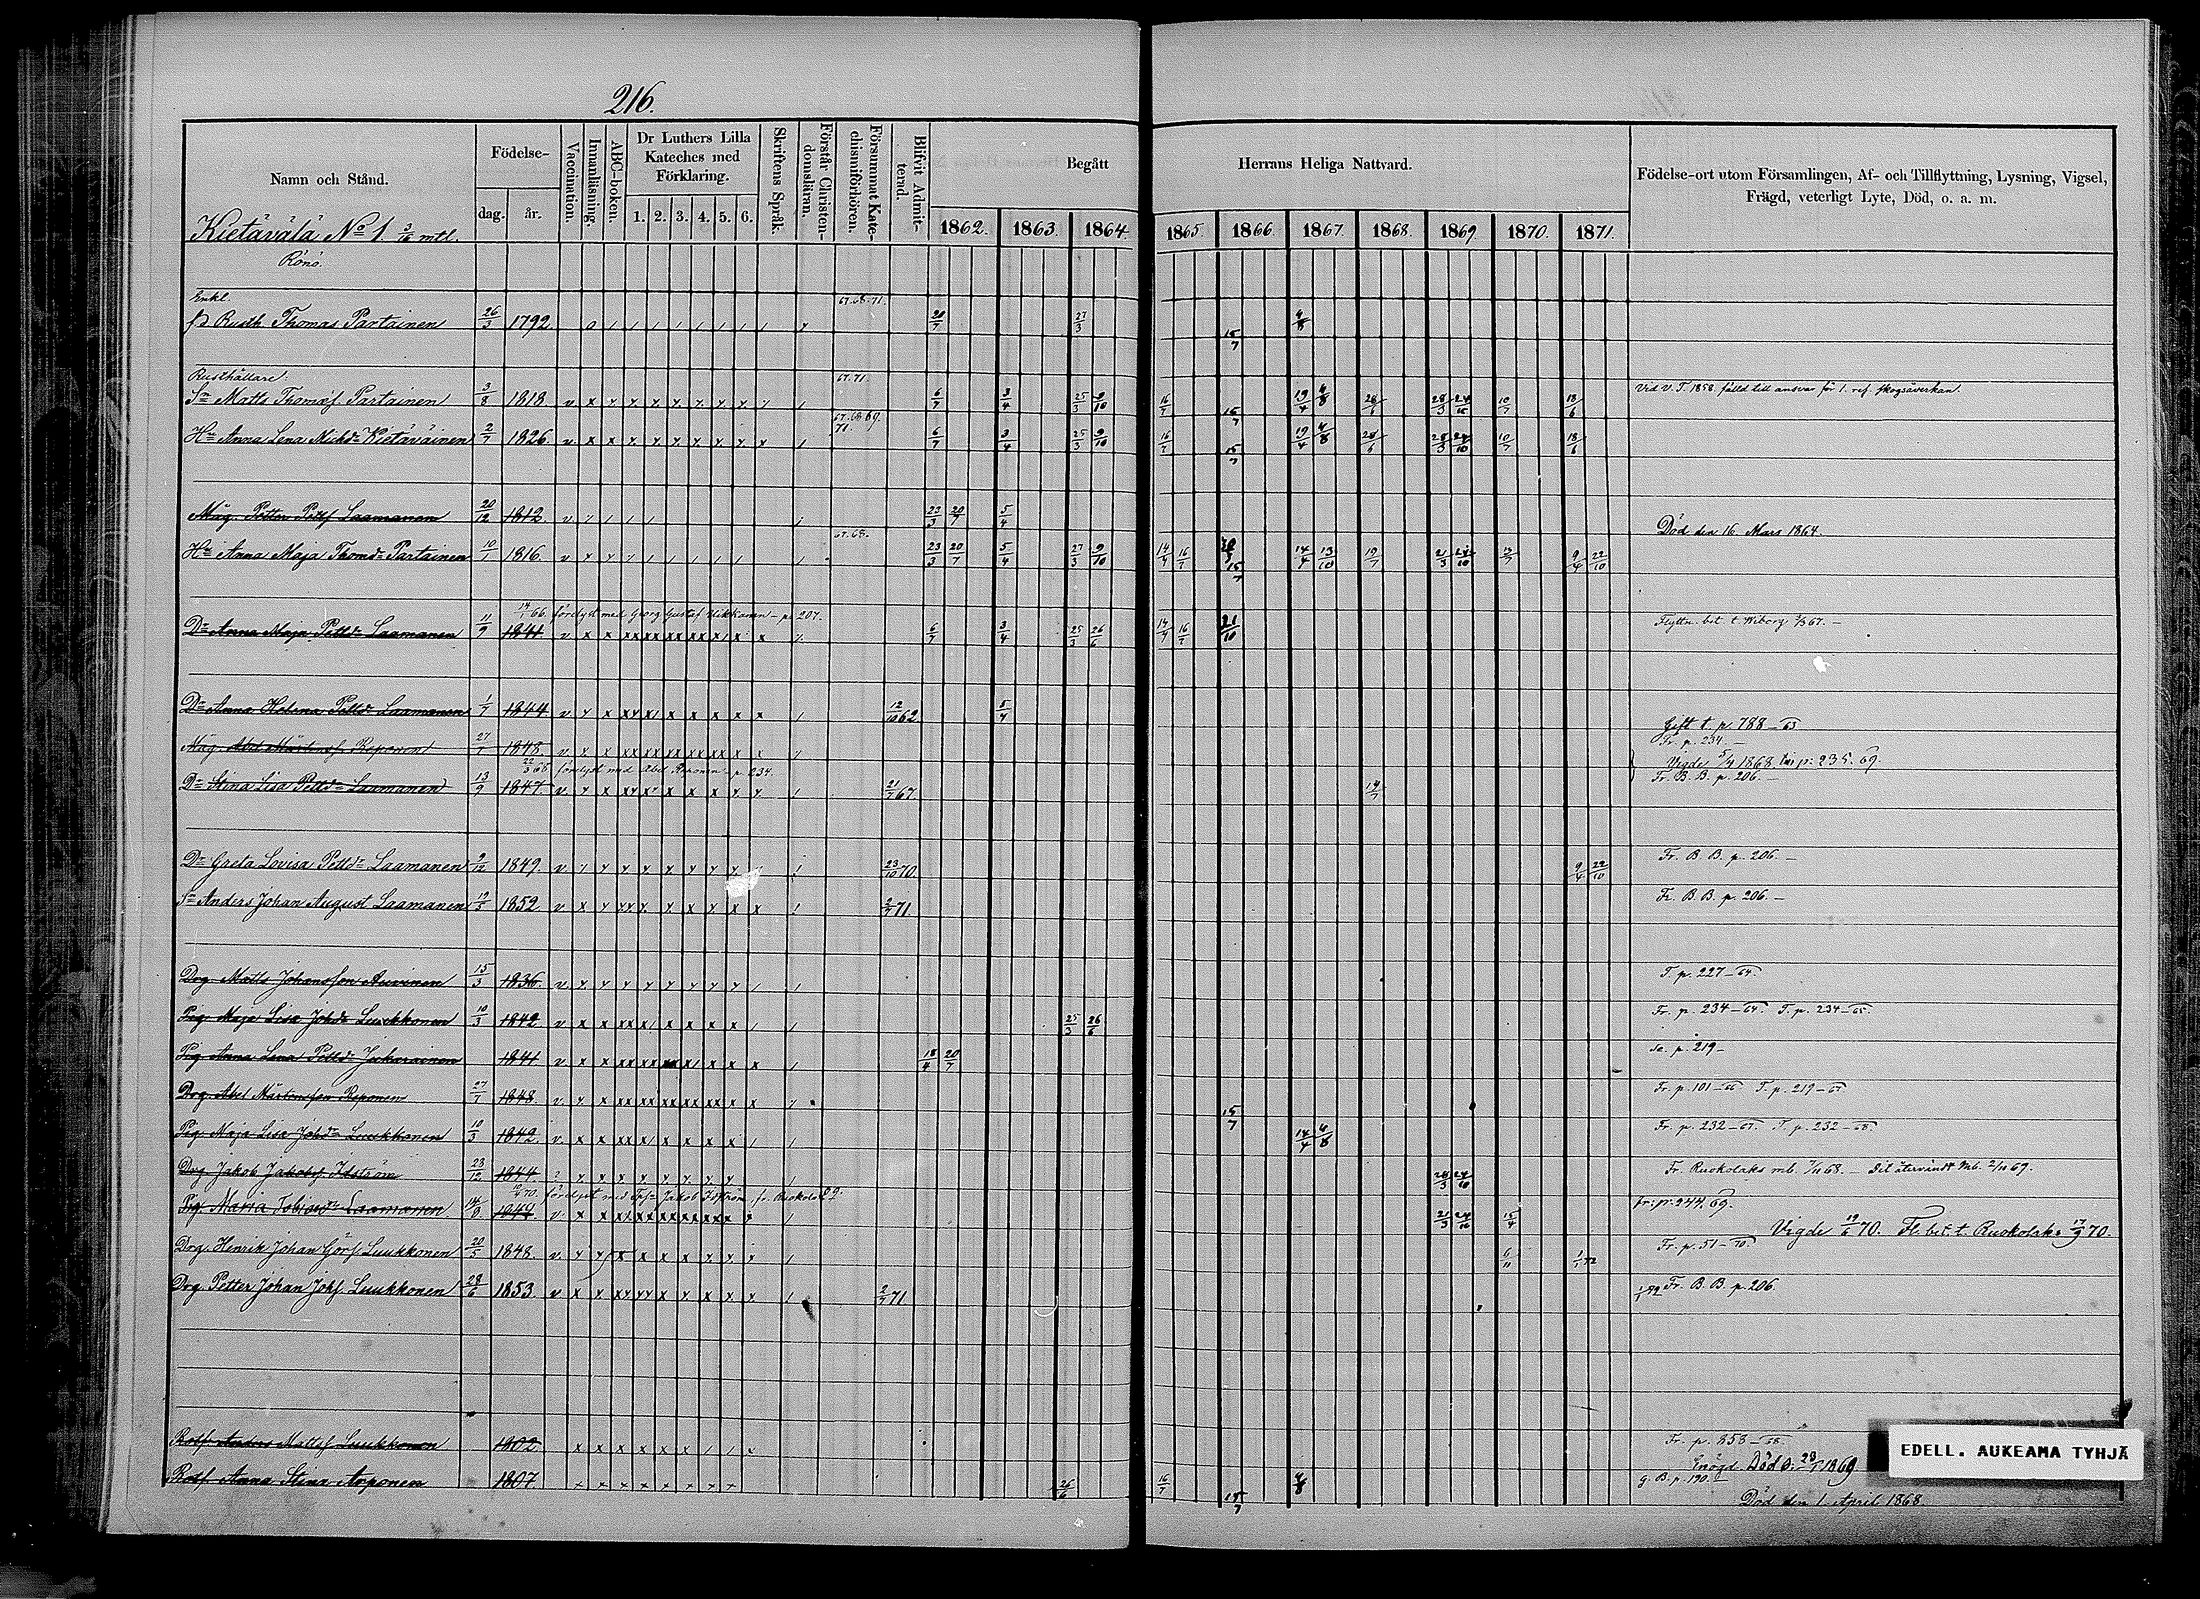 216.
Namn och Stånd.
Födelse-
dag. år.
Vaccination.
Innanläsning.
ABC-boken.
Dr Luthers Lilla Kateches med Förklaring.
1. 2. 3. 4. 5. 6.
Skriftens Språk.
Förstår Christendomsläran.
Försummat Katechismiförhören.
Blifvit Admitterad.
Begått Herrans Heliga Nattvard.
1862. 1863. 1864. 1865. 1866. 1867. 1868. 1869. 1870. 1871.
Födelse-ort utom Församlingen, Af- och Tillflyttning, Lysning, Vigsel, Frägd, veterligt Lyte, Död, o. a. m.
Kietävälä No 1. 3/16 mtl.
Rönö.
Enkl. 67.68.71.
fd Rusth. Thomas Partainen 26/3 1792 20/7 27/3 15/7 4/8
Rusthållare 67.71.
Sn Matts Thomæs. Partainen 3/8 1818 6/7 3/4 25/3 9/10 16/7 15/7 19/4 4/8 28/6 28/3 24/10 10/7 18/6 Vid V. T. 1858 fälld till ansvar för 1. ref. skogsåverkan.
67.68.69. 71.
Hu Anna Lena Michdr Kietäväinen 2/7 1826 6/7 3/4 25/3 9/10 16/7 15/7 19/4 4/8 28/6 28/3 24/10 10/7 18/6
Måg. Petter Petts Laamanen 20/12 1812 23/3 20/7 5/4 Död den 16 Mars 1864.
67.68.
Hu Anna Maja Thomdr Partainen 10/1 1816 23/3 20/7 5/4 27/3 9/10 14/4 16/7 15/7 14/4 13/10 19/7 21/3 24/10 9/4 22/10
14/1 66. förelyst med Georg Gustaf Hikkanen - p. 207.
Dr Anna Maja Pettdr Laamanen 11/9 1841 6/7 3/4 25/3 26/6 14/4 16/7 21/10 Flyttn. bet. t. Wiborg 67. -
Dr Anna Helena Pettdr Laamanen 1/7 1844 12/10 62 5/4 Gift t. p. 788 - 63
Måg. Abel Mårtens. Reponen 27/7 1848 Fr. p. 234. -
22/3 68 förelyst med Abel Reponen - p. 234. Vigde 5/4 1868 p. 235. 69.
Dr Stina Lisa Pettdr Laamanen 13/9 1847 21/7 67. 19/7 Fr. B. B. p. 206. -
Dr Greta Lovisa Pettdr Laamanen 9/12 1849 23/10 70. 9/4 22/10 Fr. B. B. p. 206. -
Sn Anders Johan August Laamanen 19/5 1852 2/7 71. Fr. B. B. p. 206. -
Drg Matts Johansson Auvinen 15/3 1836 T. p. 227 - 64
Pig. Maja Lisa Johdr Luukkonen 10/3 1842 25/3 26/6 Fr. p. 234 - 64. T. p. 234 - 65.
Pig. Anna Lena Pettdr Jukarainen 1841 18/4 20/7 se. p. 219 -
Drg. Abel Mårtensson Reponen 27/7 1848 15/7 Fr. p. 101 - 66 T. p. 219 - 67
Pig. Maja Lisa Johdr Luukkonen 10/3 1842 14/4 4/8 Fr. p. 232 - 67. T. p. 232 - 68.
Drg. Jakob Jakobs. Idström 23/12 1844 28/3 24/10 Fr. Ruokolaks mb. 68. - Dit återvändt mb. 69.
70. förelyst med Jakob Idström fr. Ruokolaks
Pig. Maria Tobiasdr Laamanen 14/9 1844 21/3 24/10 15/4 fr. p. 244. 69.
Vigde 19/6 70. Fl. bet. t. Ruokolaks 17/9 70.
Drg. Henrik Johan Görs. Luukkonen 20/5 1848 6/11 1/1 72 Fr. p. 51 - 70.
Drg. Petter Johan Johs. Luukkonen 28/6 1853 2/7 71 1/1 72 Fr. B. B. p. 206.
Rotf Anders Mattsf Luukkonen 1802 Fr. p. 858 - 68.
Enögd Död d. 1869
Rotf. Anna Stina Arponen 1807 26/6 16/7 15/7 4/8 G. B. p. 190.
Död den 1 April 1868
EDELL. AUKEAMA TYHJÄ